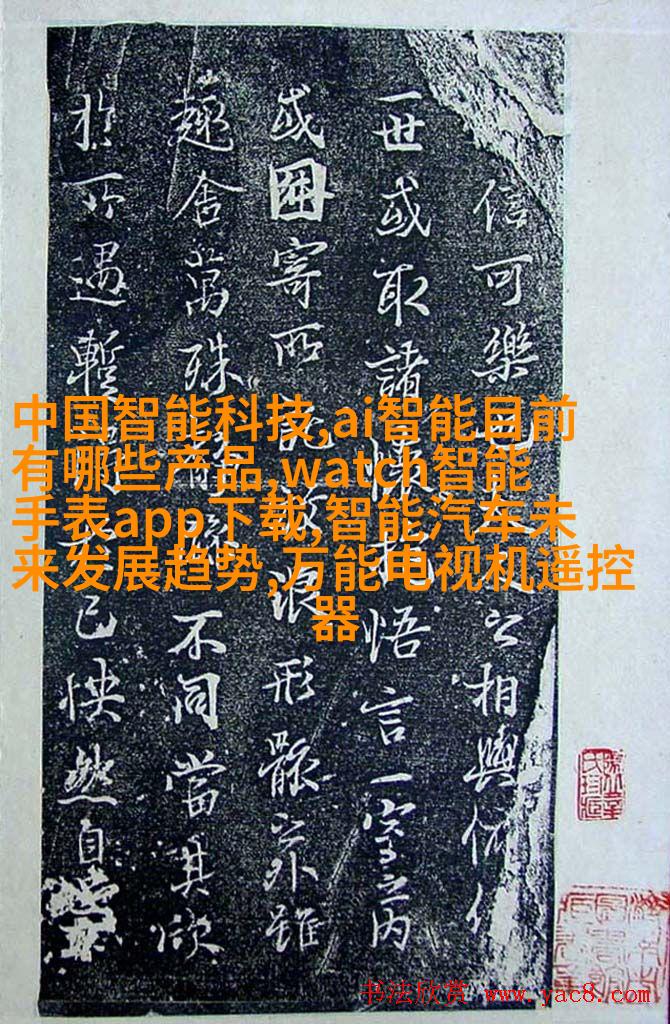 中国智能科技,ai智能目前
有哪些产品,watch智能
手表app下载,智能汽车未
来发展趋势,万能电视机遥控
器
信可樂之相與俯仰
一世或取諸懷抱悟言一室之内
或因寄所託放浪形骸之外雖
趣舍萬殊靜躁不同當其欣
於所遇暫己怏然自
书法欣赏 www.yac8.com